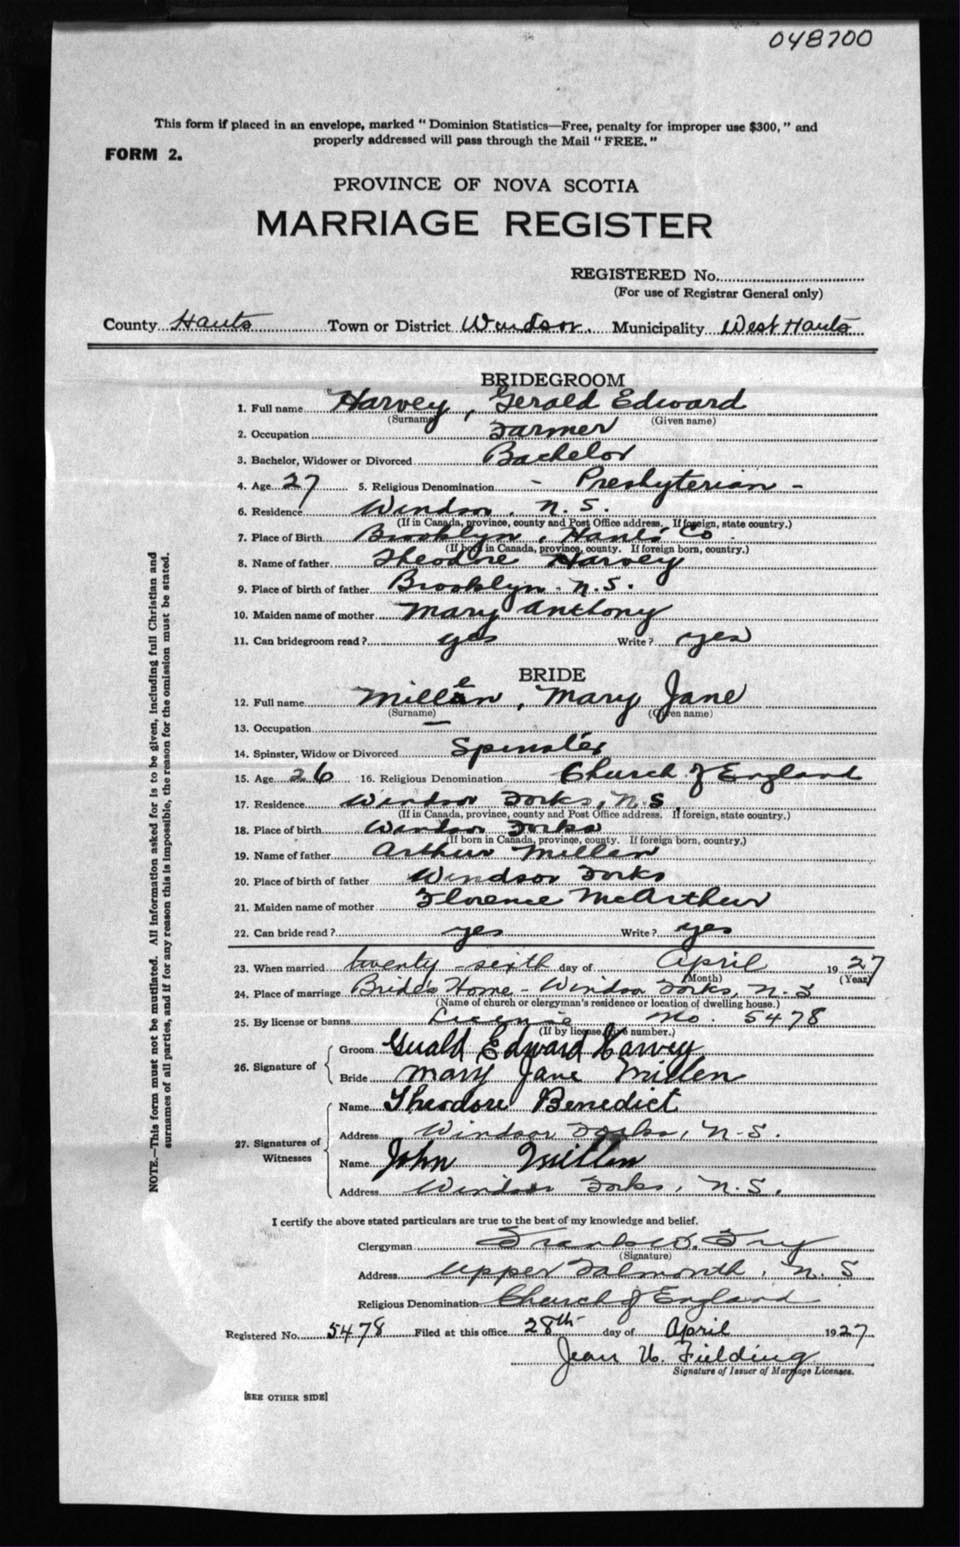 048700
This form if placed in an envelope, marked "Dominion Statistics—Free, penalty for improper use $300," and
properly addressed will pass through the Mail "FREE."
FORM 2.
PROVINCE OF NOVA SCOTIA
MARRIAGE REGISTER
REGISTERED No.
(For use of Registrar General only)
County Hants Town or District Windsor. Municipality West Hants
BRIDEGROOM
1. Full name Harvey, Gerald Edward
(Surname) (Given name)
2. Occupation Farmer
3. Bachelor, Widower or Divorced Bachelor
4. Age 27 5. Religious Denomination - Presbyterian -
6. Residence Windsor, N.S.
(If in Canada, province, county and Post Office address. If foreign, state country.)
7. Place of Birth Brooklyn, Hants Co.
(If born in Canada, province, county. If foreign born, country.)
8. Name of father Theodore Harvey
9. Place of birth of father Brooklyn. N.S.
10. Maiden name of mother Mary Anthony
11. Can bridegroom read? yes Write? yes
BRIDE
12. Full name Millen, Mary Jane
(Surname) (Given name)
13. Occupation —
14. Spinster, Widow or Divorced Spinster
15. Age 26 16. Religious Denomination Church of England
17. Residence Windsor Forks, N.S.
(If in Canada, province, county and Post Office address. If foreign, state country.)
18. Place of birth Windsor Forks
(If born in Canada, province, county. If foreign born, country.)
19. Name of father Arthur Millen
20. Place of birth of father Windsor Forks
21. Maiden name of mother Florence McArthur
22. Can bride read? yes Write? yes
23. When married twenty-sixth day of April 1927
(Month) (Year)
24. Place of marriage Bride's Home - Windsor Forks, N.S
(Name of church or clergyman's residence or location of dwelling house.)
25. By license or banns License No. 5478
(If by license, give number.)
26. Signature of
Groom Gerald Edward Harvey
Bride Mary Jane Millen
27. Signatures of Witnesses
Name Theodore Benedict
Address Windsor Forks, N.S.
Name John Millen
Address Windsor Forks, N.S.
I certify the above stated particulars are true to the best of my knowledge and belief.
Clergyman Frank W. Fry
(Signature)
Address Upper Falmouth, N.S
Religious Denomination Church of England
Registered No. 5478 Filed at this office 28th day of April 1927
Jean W. Fielding
Signature of Issuer of Marriage Licenses.
[SEE OTHER SIDE]
NOTE.—This form must not be mutilated. All information asked for is to be given, including full Christian and
surnames of all parties, and if for any reason this is impossible, the reason for the omission must be stated.